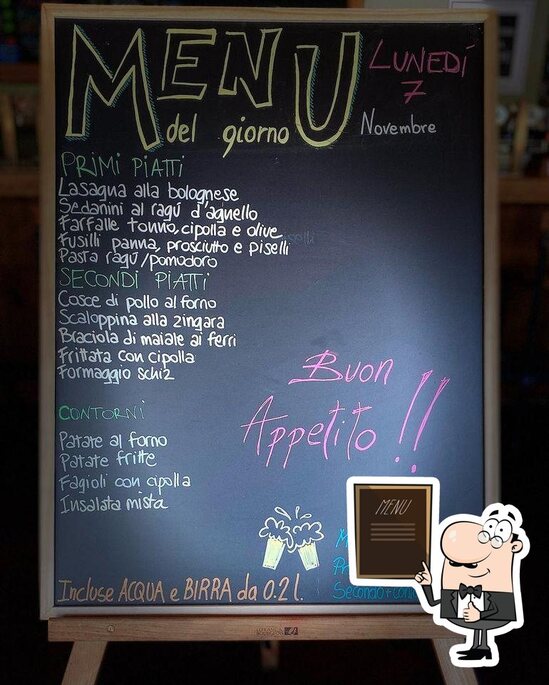 MENU
del giorno
LUNEDÍ
7
Novembre
PRIMI PIATTI
Lasagna alla bolognese
Sedanini al ragú d'agnello
Farfalle tonno, cipolla e olive
Fusilli panna, prosciutto e piselli
Pasta ragú/pomodoro
SECONDI PIATTI
Cosce di pollo al forno
Scaloppina alla zingara
Braciola di maiale ai ferri
Frittata con cipolla
Formaggio schiz
CONTORNI
Patate al forno
Patate fritte
Fagioli con cipolla
Insalata mista
Buon
Appetito!!
MENU
Secondo+
Incluse ACQUA e BIRRA da 0.2 l.